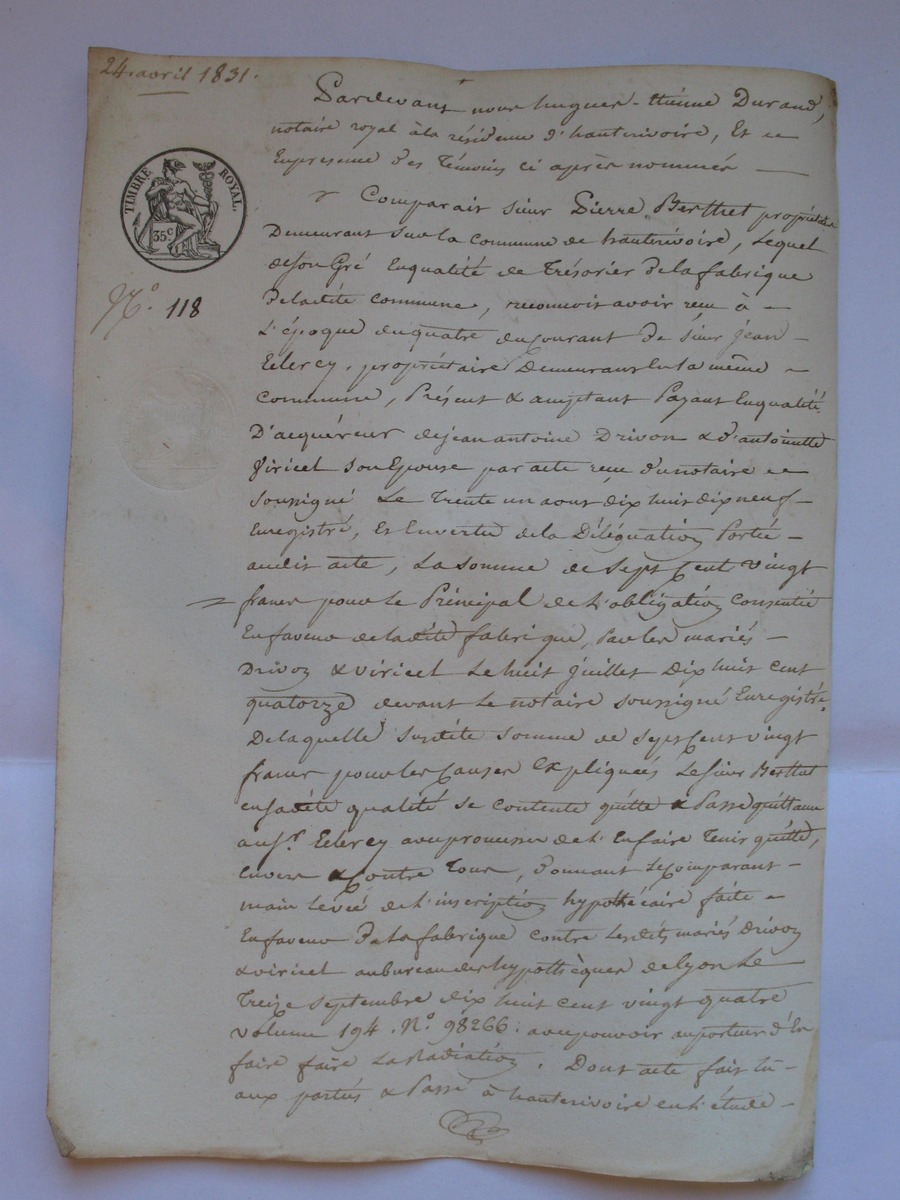 24. avril 1831.
Pardevant nous hugues-Etienne Durand,
notaire royal à la résidence d'hauterivoire, Et
En présence des Témoins ci après nommés
TIMBRE ROYAL.
35 c
Comparait sieur Pierre Berthet propriétaire
Demeurant sur la commune de hauterivoire, Lequel
de son Gré En qualité de Trésorier de la fabrique
De ladite commune, reconnoit avoir reçu à
No. 118
L'époque du quatre du Courant de sieur Jean
propriétaire Demeurant En la même
commune, Présent & acceptant Payant En qualité
D'acquéreur de jean antoine Drivon & d'antoinette
Viricel son Epouse par acte reçu du notaire
soussigné Le Trente un aout dix huit dix neuf
Enregistré, Et En vertu de la Délégation Portée
audit acte, La somme de Sept Cent vingt
francs pour Le Principal de L'obligation Consentie
En faveur de ladite fabrique, Par les mariés
Drivon & viricel Le huit Juillet Dix huit cent
quatorze devant Le notaire soussigné Enregistré.
De laquelle susdite somme de Sept Cent vingt
francs pour les Causes Expliquées Le sieur Berthet
en sadite qualité se contente quitte & Passe quittance
au sr. avec promesse de L'En faire Tenir quitte,
Envers & Contre Tous, Donnant Le Comparant
main levée de L'inscription hypothécaire faite
En faveur De La fabrique contre Lesdits mariés Drivon
& viricel au bureau des hypothèques de Lyon Le
Treize Septembre dix huit cent vingt quatre
volume 194. No. 98266. avec pouvoir au porteur d'En
faire faire La Radiation. Dont acte fait Lu
aux parties & Passé à hauterivoire en L'étude